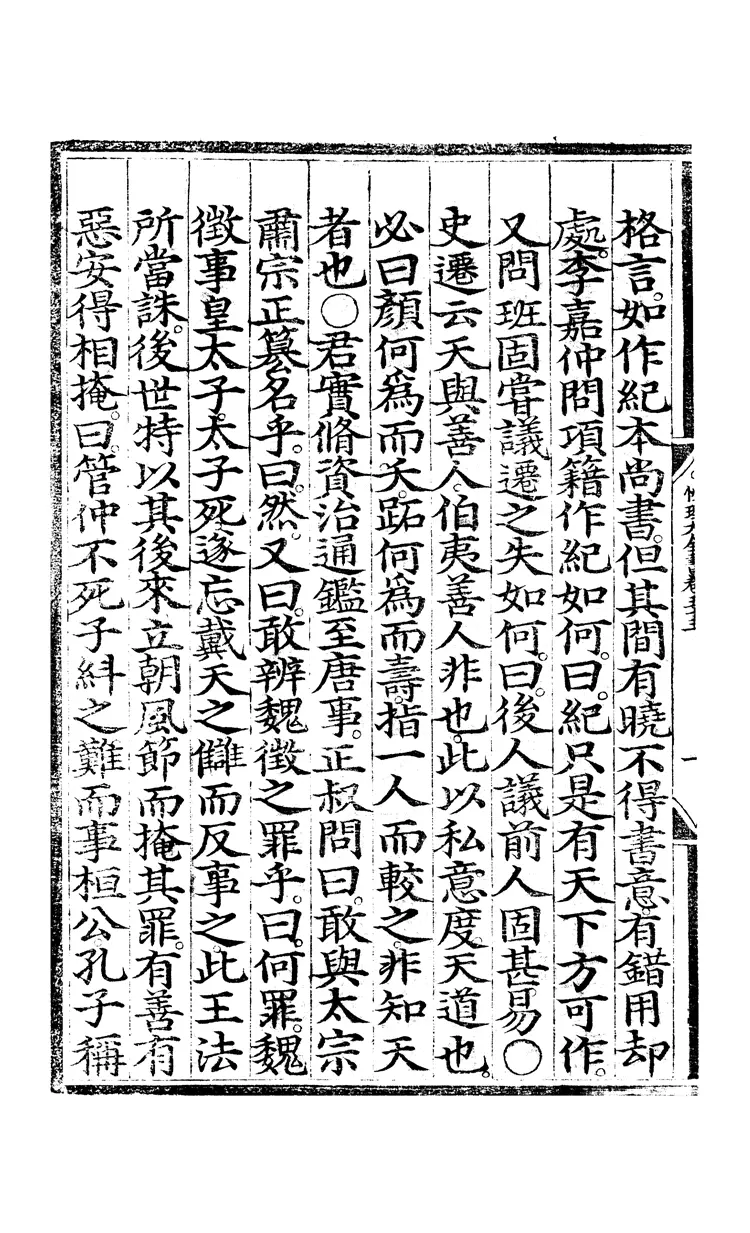 格言。如作紀本尚書。但其間有曉不得書意。有錯用却
處。李嘉仲問項籍作紀如何。曰。紀只是有天下方可作。
又問班固嘗議遷之失如何。曰。後人議前人固甚易。○
史遷云天與善人。伯夷善人非也。此以私意度天道也。
必曰顏何爲而夭。跖何爲而壽。指一人而較之。非知天
者也○君實脩資治通鑑至唐事。正叔問曰。敢與太宗
肅宗正篡名乎。曰。然。又曰。敢辨魏徵之罪乎。曰。何罪。魏
徵事皇太子。太子死。遂忘戴天之讎而反事之。此王法
所當誅。後世特以其後來立朝風節而掩其罪。有善有
惡安得相掩。曰。管仲不死子糾之難而事桓公。孔子稱
性理大全書卷五十五
一